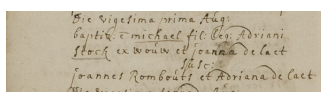 Die vigesima prima Aug:
baptiz: ē michael fil: leg: Adriani
stock ex wouw et joanna de laet
susc:
joannes Rombouts et Adriana de laet